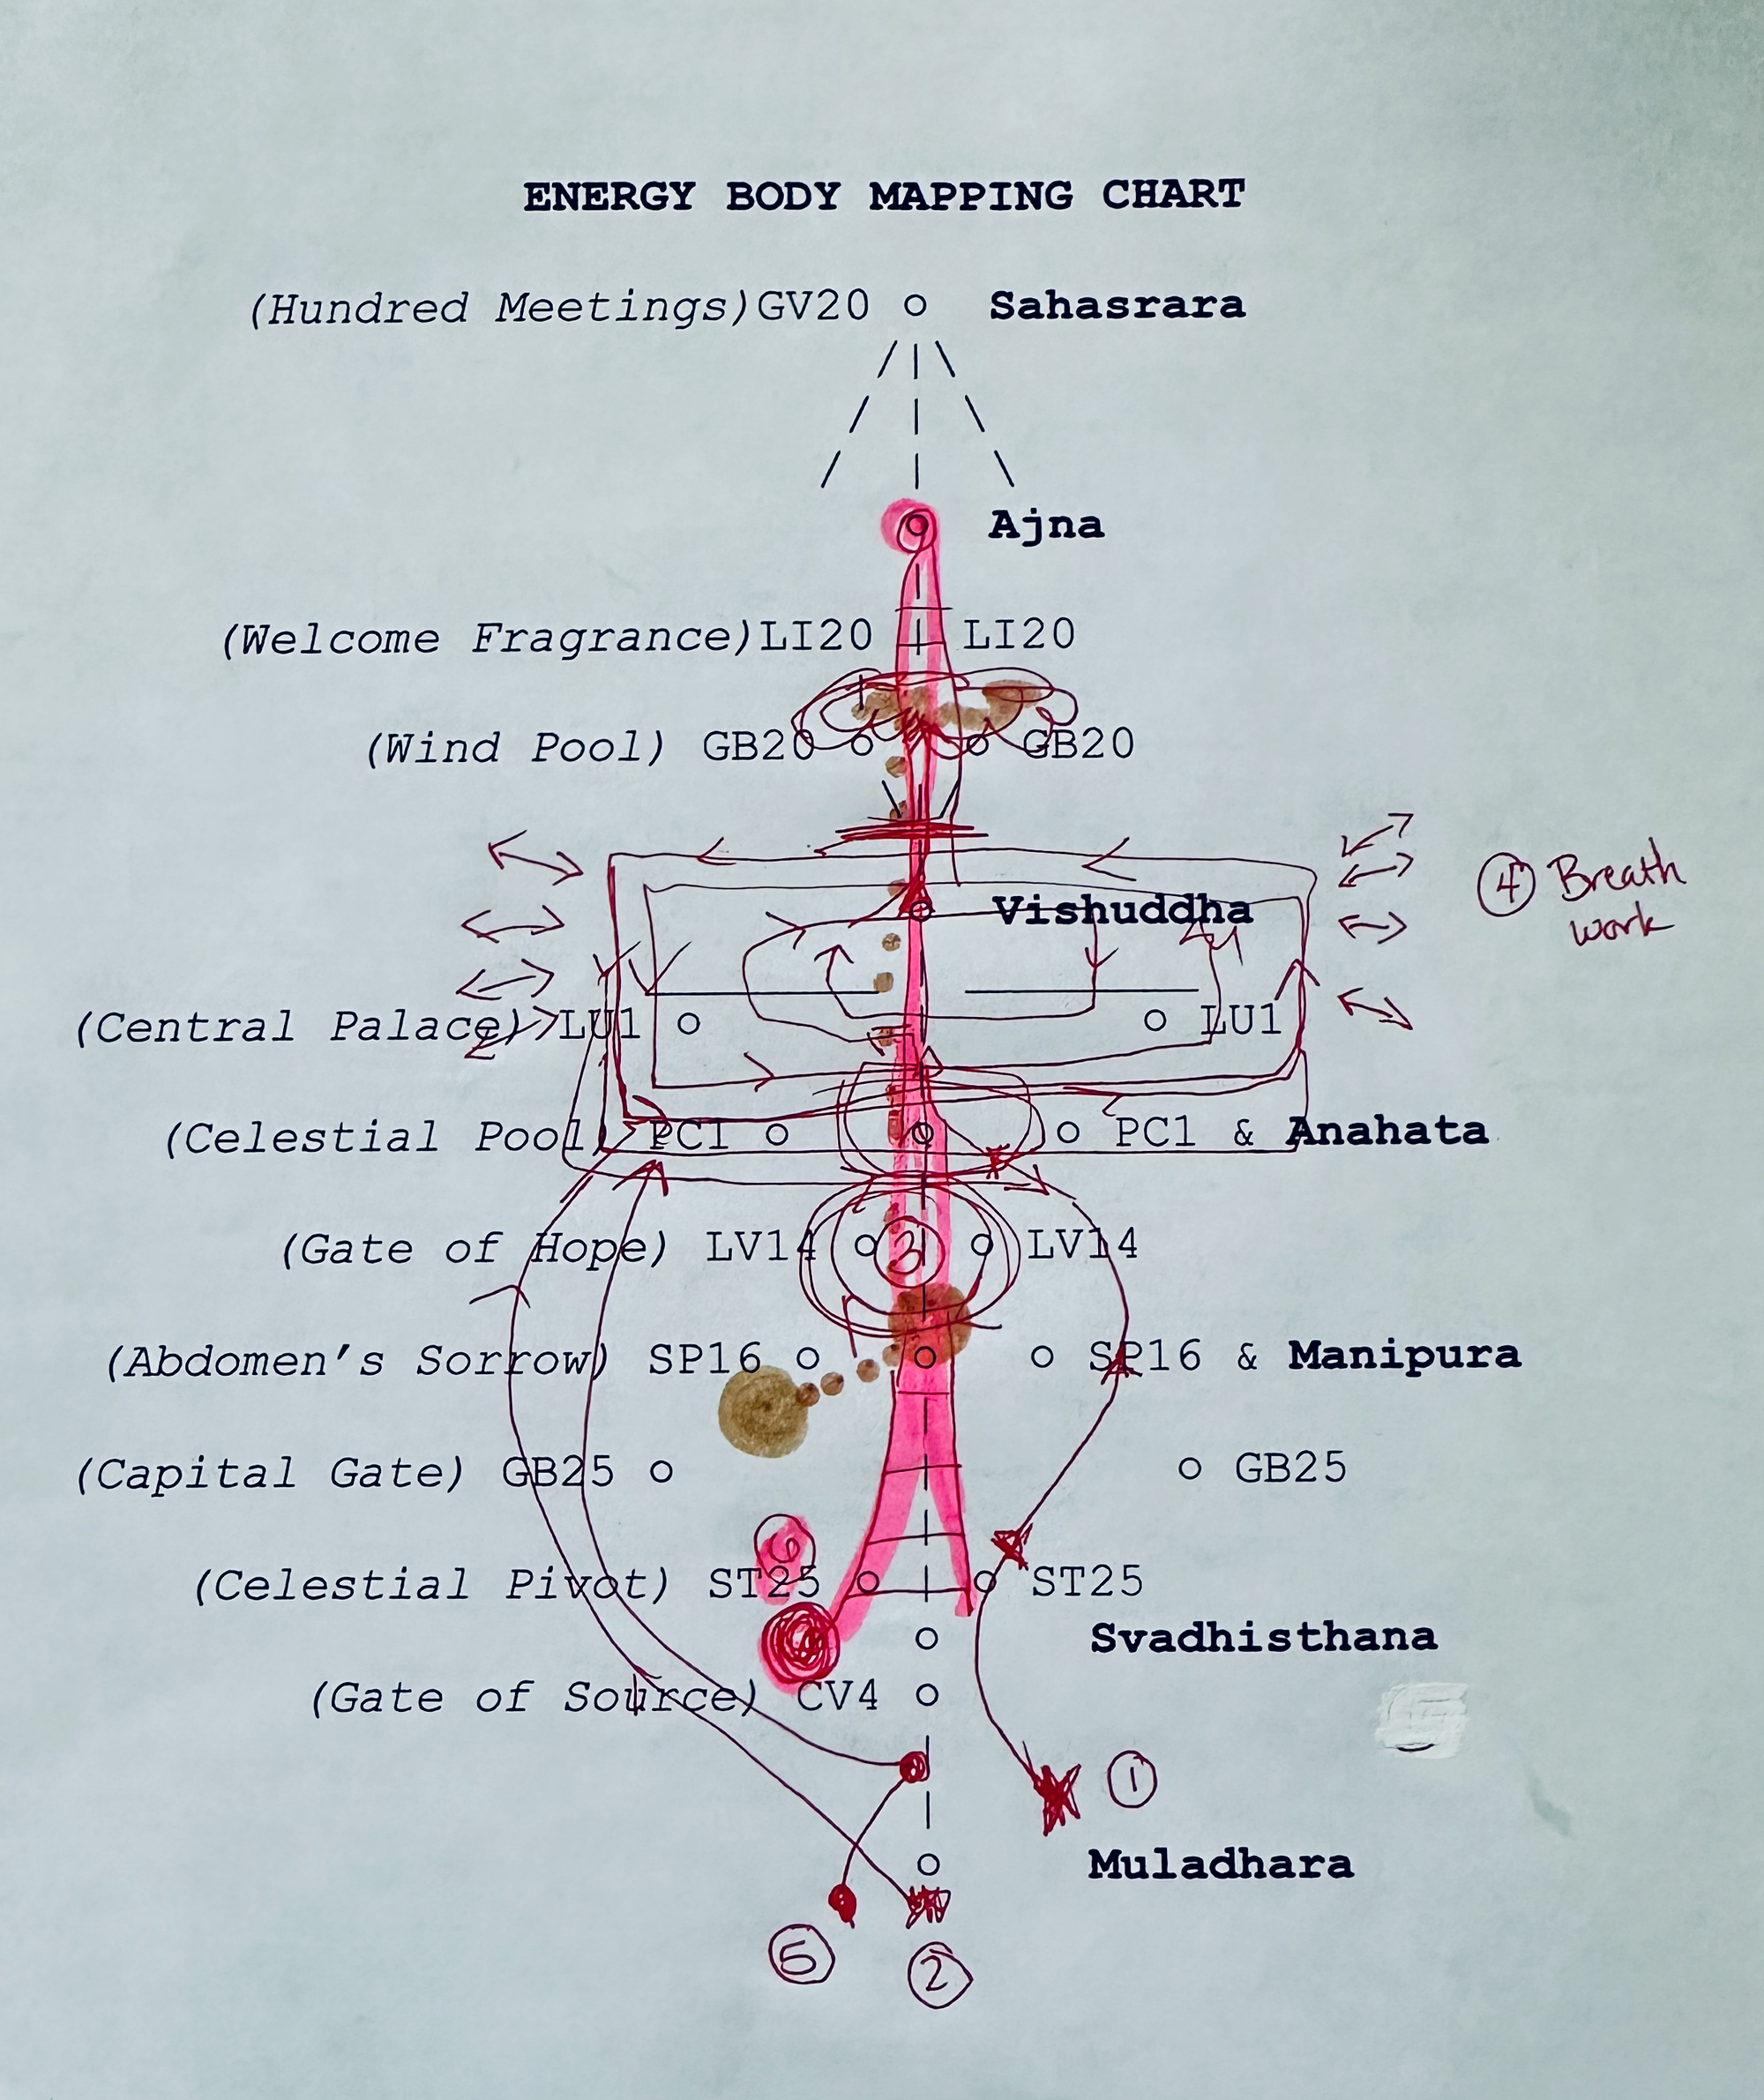 ENERGY BODY MAPPING CHART
(Hundred Meetings)GV20 Sahasrara
Ajna
(Welcome Fragrance)LI20 LI20
(Wind Pool) GB20 GB20
④ Breath
work
Vishuddha
(Central Palace) LU1 LU1
(Celestial Pool) PC1 PC1 & Anahata
(Gate of Hope) LV14 ③ LV14
(Abdomen's Sorrow) SP16 SP16 & Manipura
(Capital Gate) GB25 GB25
⑥
(Celestial Pivot) ST25 ST25
Svadhisthana
(Gate of Source) CV4
①
Muladhara
⑤ ②